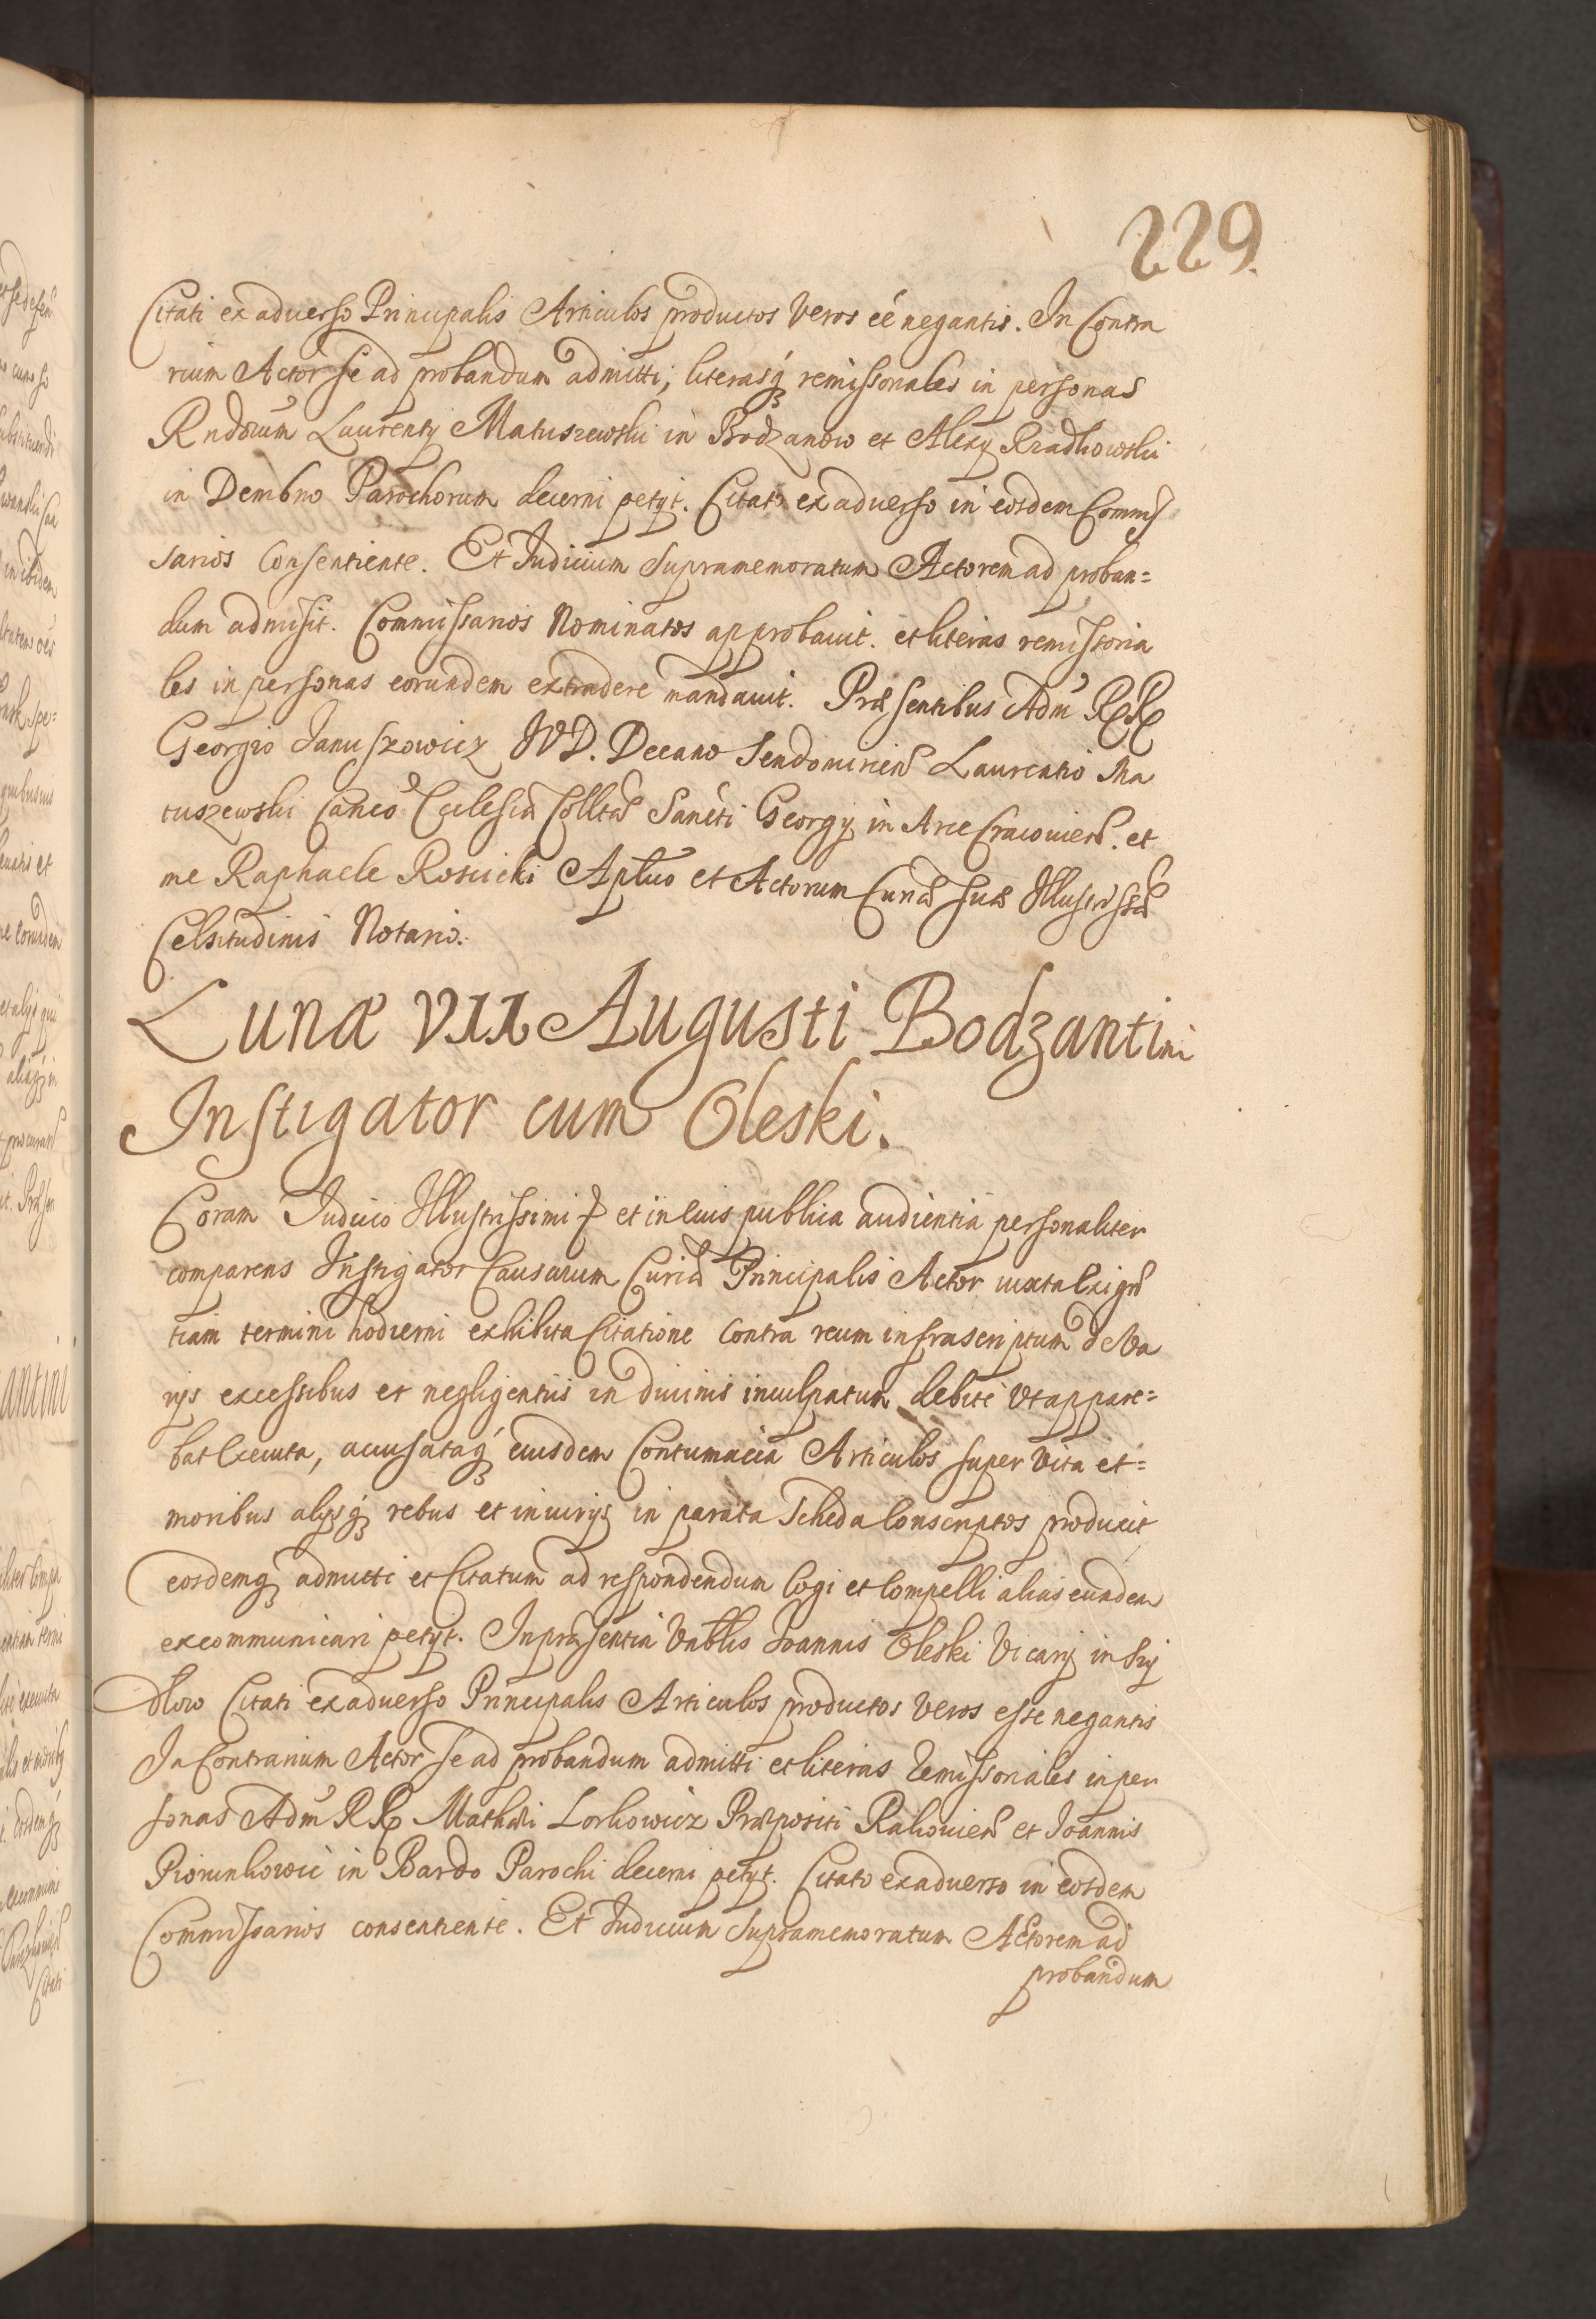 229
Citati ex aduerso Principalis Articulos productos veros eé negantis. In Contra
rium Actor se ad probandum admitti, literasq́ remissionales in personas
Rndorum Laurentij Matuszewski in Bodzanow et Alexy Rzadkowski
in Dembno Parochorum decerni petijt. Citato ex aduerso in eosdem Commis
sarios Consentiente. Et Iudicium Supramemoratum Actorem ad proban=
dum admisit. Commissarios Nominatos approbauit. et literas remissoria
les in personas eorundem extradere mandauit. Præsentibus Adm RR
Georgio Januszowicz IVD. Decano Sendomirien Laurentio Ma
tuszewski Canco Ecclesiæ Colltæ Sancti Georgij in Arce Cracouien. et
me Raphaele Roscicki Aplico et Actorum Curiæ suæ Illustrissæ
Celsitudinis Notario.
Lunæ VII Augusti Bodzantini
Instigator cum Oleski.
Coram Iudicio Illustrissimi et in eius publica audientia personaliter
comparens Instigator Causarum Curiæ Principalis Actor iuxta Exigen
tiam termini hodierni exhibita Citatione Contra reum infrascriptum de Va
rijs excessibus et negligentiis in diuinis inculpatum debite vt appare=
bat Executa, accusataq́ eiusdem Contumacia Articulos super vita et=
moribus alijsq́ rebus et iniurijs in parata Scheda Conscriptos produxit
eosdemq admitti et Citatum ad respondendum Cogi et Compelli alias eundem
excommunicari petijt. In præsentia Vnblis Ioannis Oleski Vicarij in Szy
dlow Citati ex aduerso Principalis Articulos productos veros esse negantis
In Contrarium Actor se ad probandum admitti et literas Remissoriales in per
sonas Adm RR Mathæi Lorkowicz Præpositi Rakouien et Ioannis
Piorunkowic in Bardo Parochi decerni petijt. Citato ex aduerso in eosdem
Commissarios consentiente. Et Iudicium Supramemoratum Actorem ad
probandum